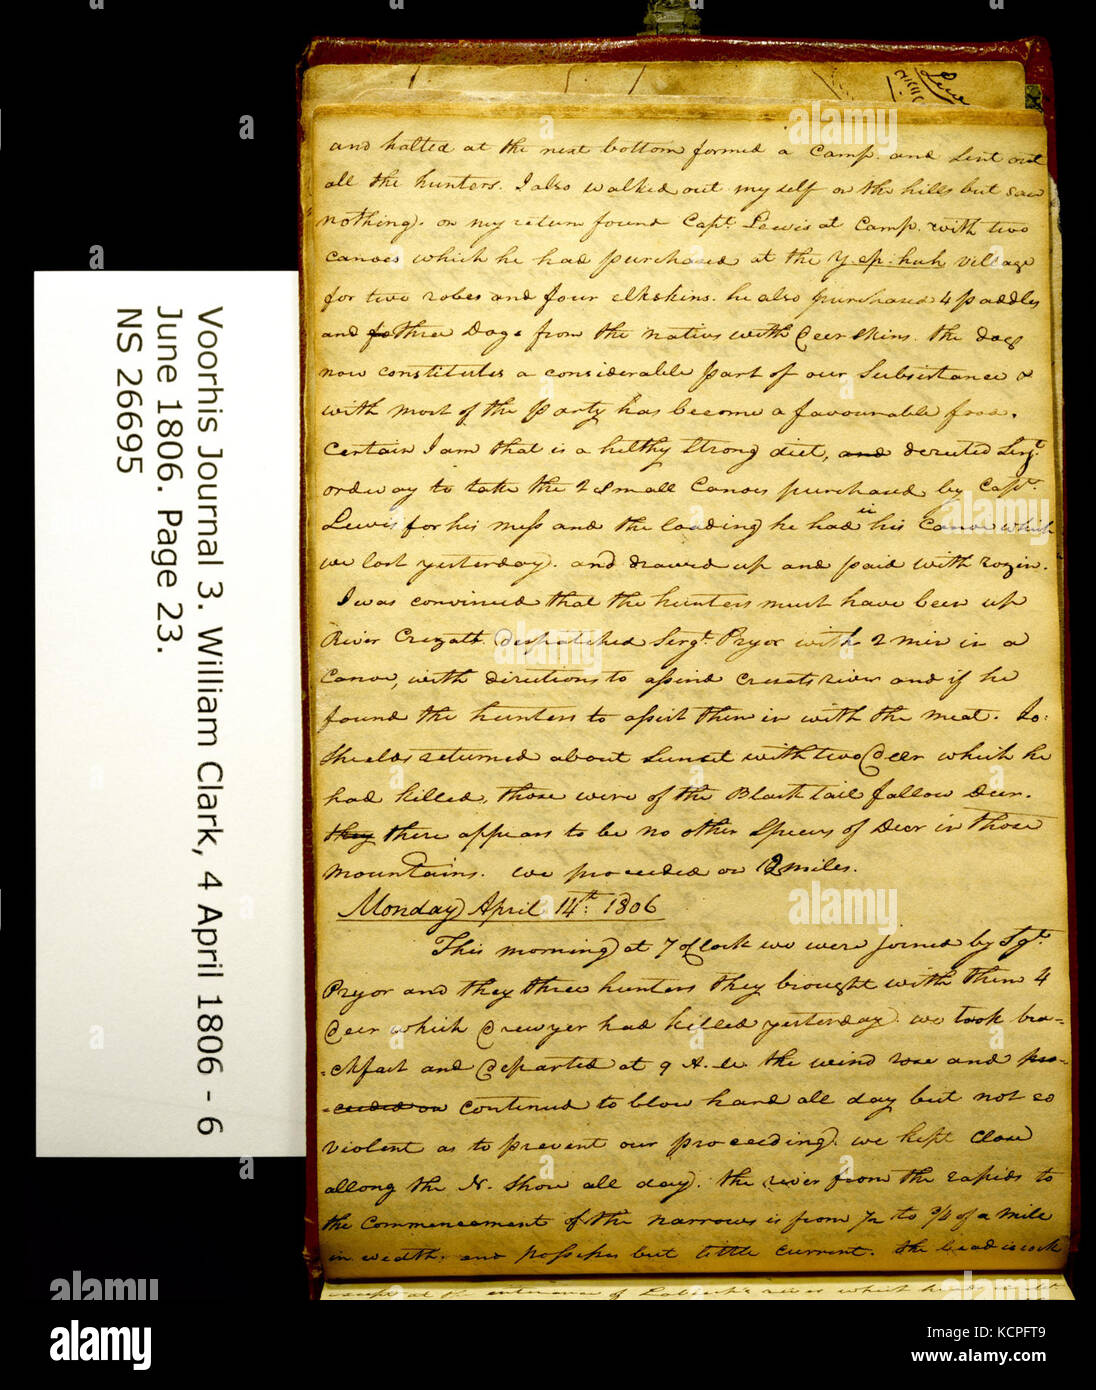 Voorhis Journal 3. William Clark, 4 April 1806 - 6
June 1806. Page 23.
NS 26695
and halted at the next bottom formed a Camp. and Sent out
all the hunters. I also walked out my self on the hills but saw
nothing. on my return found Capt. Lewis at Camp. with two
canoes which he had purchased at the Y-ep-huh village
for two robes and four elkskins. he also purchased 4 paddles
and fo three Dogs from the nativs with Deer Skins. the dog
now constitutes a considerable part of our Subsistance &
with most of the party has become a favourable food.
Certain I am that is a helthy strong diet, and derected Sergt.
ordway to take the 2 Small Canoes purchased by Capt.
Lewis for his mess and the loading he had in his Canoe which
we lost yesterday. and drawed up and paid with rozin.
I was convinced that the hunters must have been up
River Cruzatt. despatched Sergt. Pryor with 2 men in a
Canoe, with directions to assend Crusats river and if he
found the hunters to assist them in with the meat. Jo:
Shields returned about Sunset with two Deer which he
had killed, those were of the Black tail fallow Deer.
they there appears to be no other Speces of Deer in those
mountains. we proceeded on 12 miles.
Monday April 14th. 1806
This morning at 7 oClock we were joined by Sgt.
Pryor and they three hunters they brought with them 4
Deer which Drewyer had killed yesterday. we took bra=
=ckfast and departed at 9 A.M. the wind rose and pro=
=ceeded on continued to blow hard all day but not so
violent as to prevent our proceeding. we kept Close
allong the N. Shore all day. the river from the rapids to
the Commencement of the narrows is from 1/2 to 3/4 of a mile
in wedth, and possesses but little current. the bead is rock
except at the enterance of Labiech's river which
alamy
a
alamy
Image ID: KCPFT9
www.alamy.com